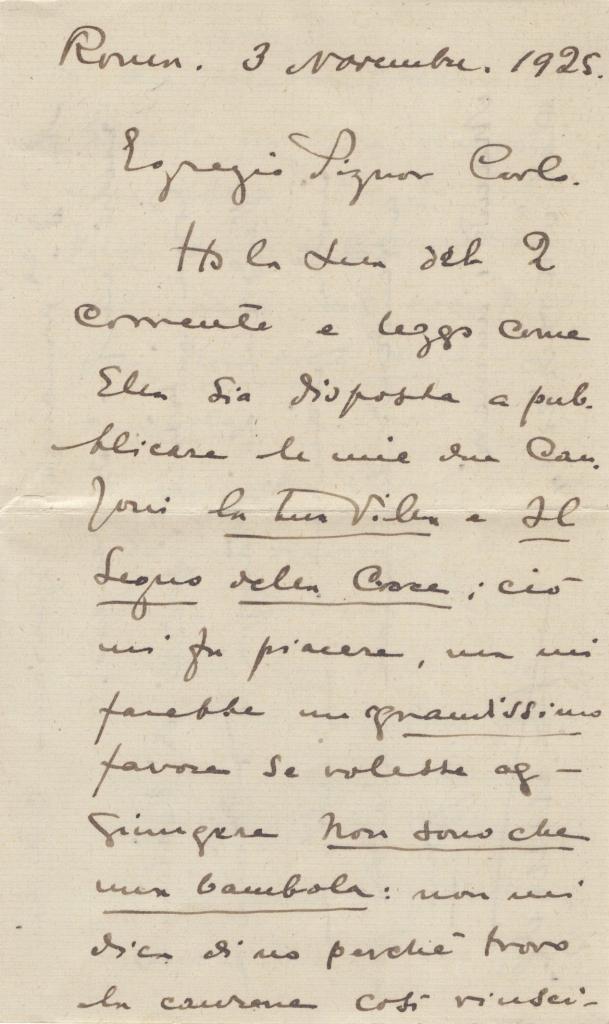 Roma. 3 Novembre. 1925.
Egregio Signor Carlo.
Ho la Sua del 2
corrente e leggo come
Ella sia disposta a pub-
blicare le mie due Can-
zoni la tua Villa e Il
Segno della Croce; ciò
mi fa piacere, ma mi
farebbe un grandissimo
favore se volesse ag-
giungere Non sono che
una bambola: non mi
dica di no perchè trovo
la canzone così riusci-